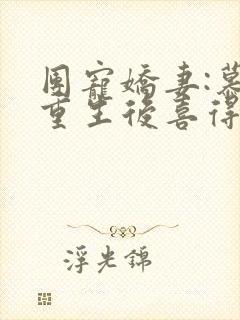 團寵嬌妻:慕
重生後喜得
浮光錦